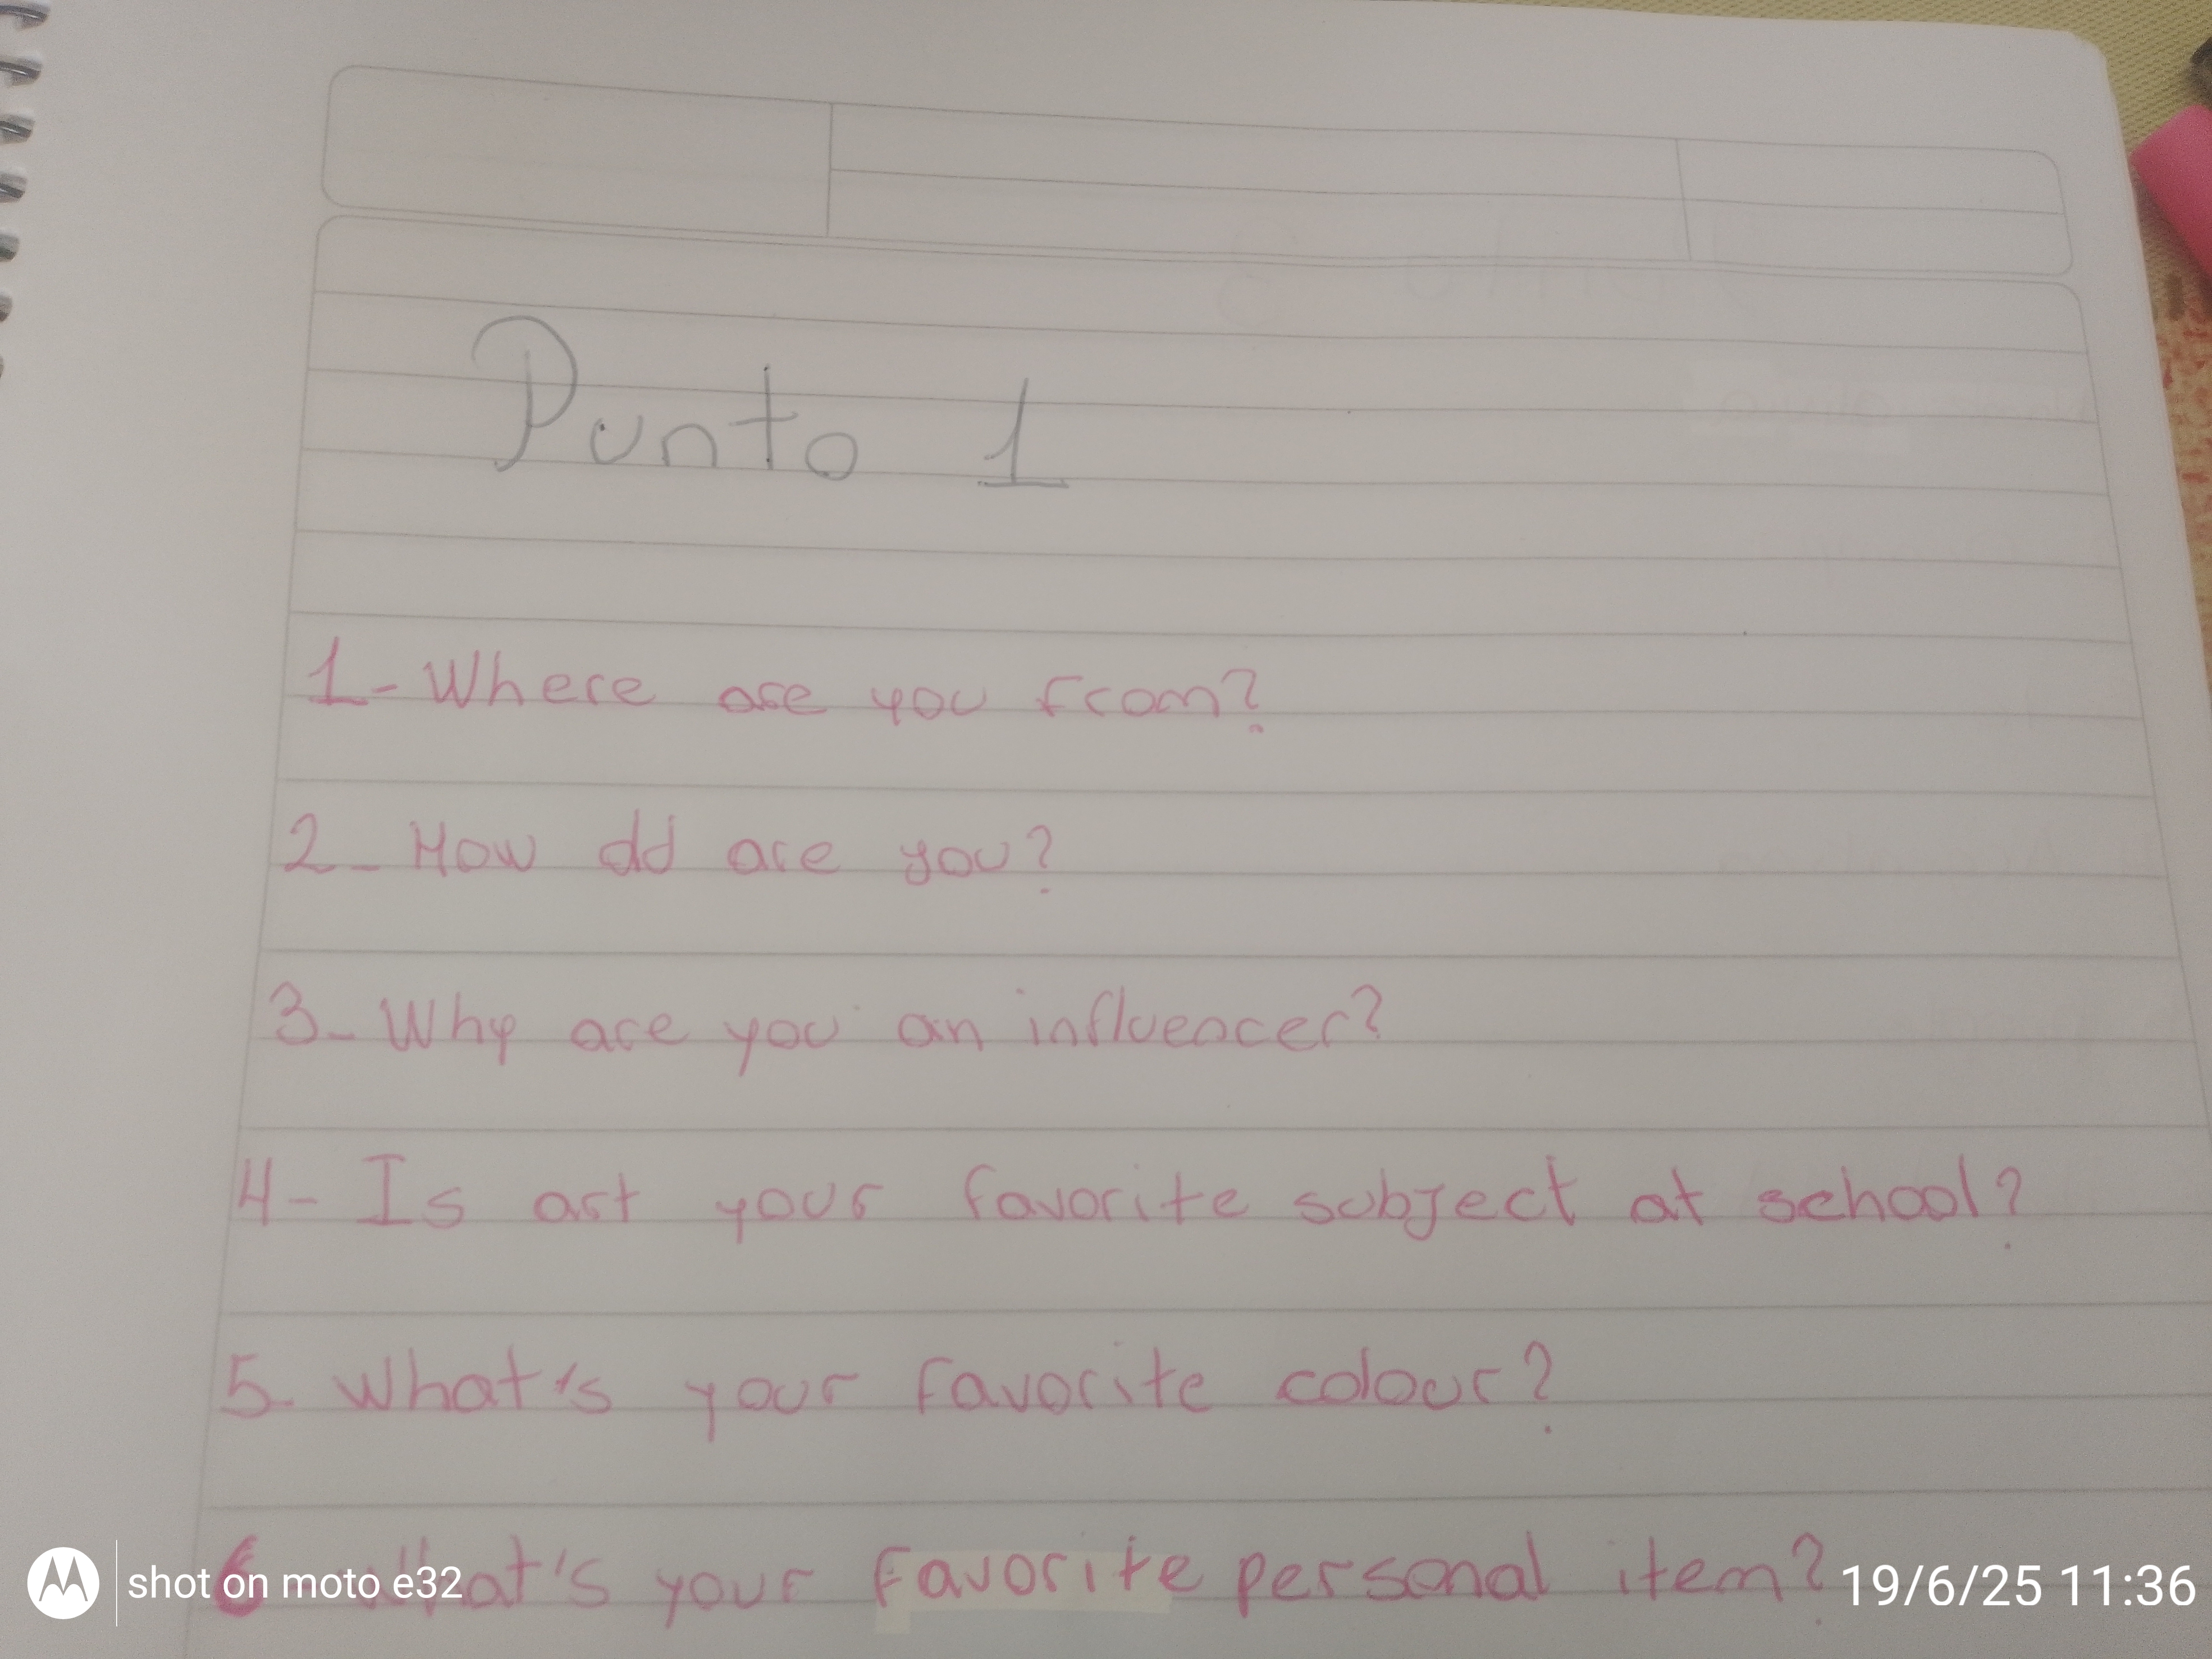 Punto 1
1- Where are you from?
2- How old are you?
3- Why are you an influencer?
4- Is art your favorite subject at school?
5- What's your favorite colour?
6 What's your favorite personal item?
shot on moto e32
19/6/25 11:36